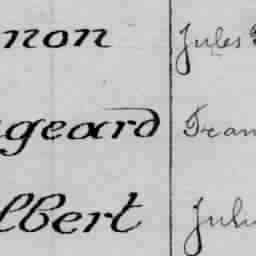 non Jules
geard Fran
lbert Juli